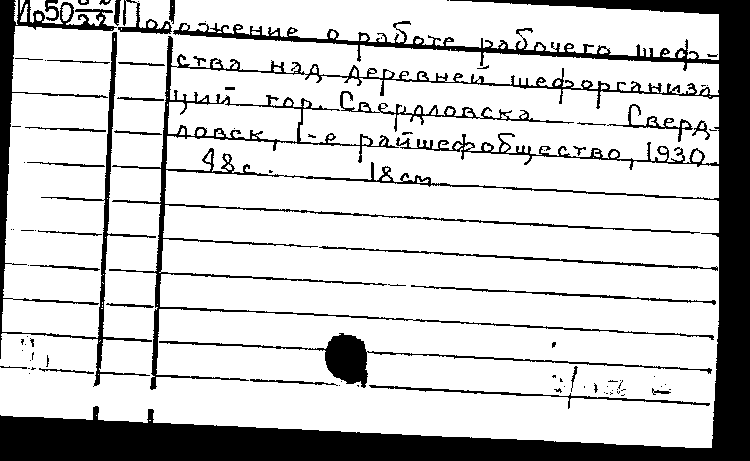 Положение о работе рабочего шеф-
ства над деревней шефорганиза
ций гор. Свердловска Сверд-
ловск, 1-е райшефобщество, 1930.
48с. 18см